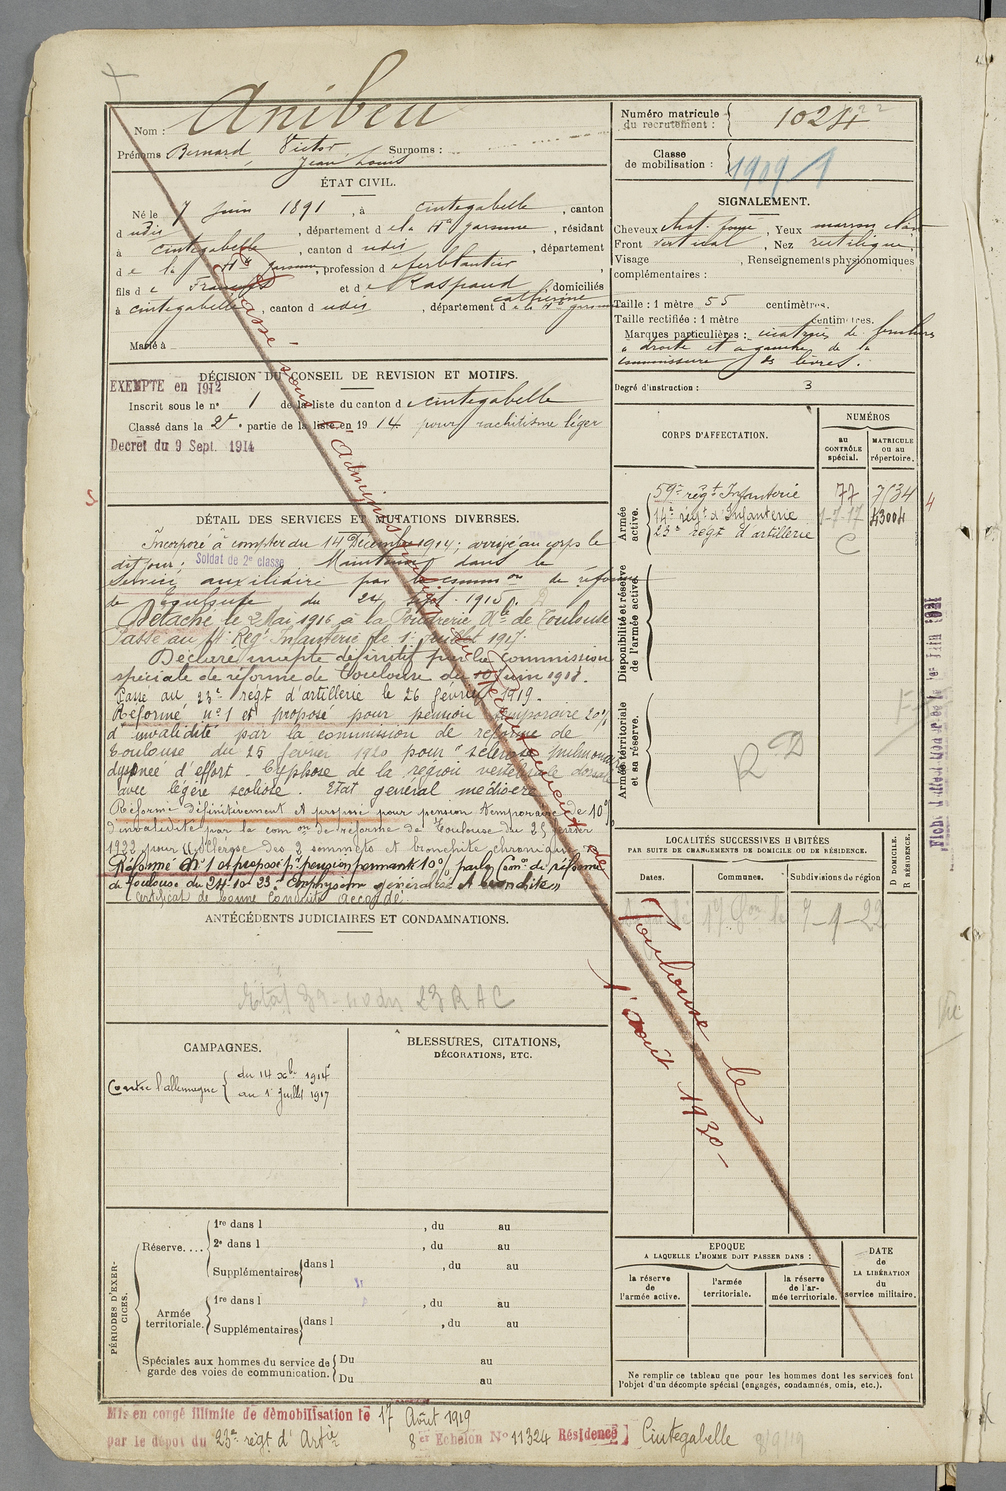 Nom : Anibeu
Prénoms : Bernard, Victor, Surnoms :
Jean Louis
Numéro matricule
du recrutement : 1024
Classe
de mobilisation : 1909
ÉTAT CIVIL.
Né le 7 Juin 1891, à Cintegabelle, canton
d udis, département d e la Hte garonne, résidant
à Cintegabelle, canton d udis, département
d e la Hte garonne, profession d e ferblantier
fils d e François et d e Raspaud domiciliés
catherine
à Cintegabelle, canton d udis, département d e la Hte garonne
Marié à
SIGNALEMENT.
Cheveux chat. foncé, Yeux marron clair
Front vertical, Nez rectiligne,
Visage , Renseignements physionomiques
complémentaires :
Taille : 1 mètre 55 centimètres.
Taille rectifiée : 1 mètre centimètres.
Marques particulières : cicatrices de
à droite et à gauche de la
commissure des lèvres.
Degré d'instruction : 3
DÉCISION DU CONSEIL DE REVISION ET MOTIFS.
EXEMPTE en 1912
Inscrit sous le n° 1 de la liste du canton d e Cintegabelle
Classé dans la 2e partie de la liste en 1914 pour rachitisme léger
Decret du 9 Sept. 1914
CORPS D'AFFECTATION.
NUMÉROS
au
CONTRÔLE
spécial.
MATRICULE
ou au
répertoire.
Armée
active.
59e régt Infanterie 77 7134
14e régt d'Infanterie 1-7-17 43004
23e régt d'artillerie C
Disponibilité et réserve
de l'armée active.
Armée territoriale
et sa réserve.
R D
DÉTAIL DES SERVICES ET MUTATIONS DIVERSES.
Incorporé à compter du 14 Décembre 1914 ; arrivé au corps le
dit jour ; Soldat de 2e classe. Maintenu dans le
Service auxiliaire par la common de réforme
de Toulouse du 24 Sept. 1915.
Détaché le 2 Mai 1916 à la Poudrerie Nle de Toulouse
Passé au 14e Regt Infanterie le 1er Juillet 1917.
Déclaré inapte définitif par la Commission
spéciale de réforme de Toulouse du 10 Juin 1918.
Passé au 23e régt d'artillerie le 26 février 1919.
Réformé n°1 et proposé pour pension temporaire 20%
d'invalidité par la commission de réforme de
Toulouse du 25 février 1920 pour "sclérose pulmonaire
dyspnée d'effort. Cyphose de la région vertébrale dorsale
avec légère scoliose. Etat général médiocre
Réformé définitivement et proposé pour pension temporaire de 10%
d'invalidité par la comon de réforme de Toulouse du 25 février
1922 pour Sclérose des 2 sommets et bronchite chronique.
Réformé n° 1 et proposé pr pension permante 10% par la Comon de réforme
de Toulouse du 24-10-23 : Emphysème généralisé et bronchite"
Certificat de bonne conduite accordé.
Classé sous l'administration du Recrutement de
Toulouse le
1er août 1930
Fiche
LOCALITÉS SUCCESSIVES HABITÉES
PAR SUITE DE CHANGEMENTS DE DOMICILE OU DE RÉSIDENCE.
Dates.
Communes.
Subdivisions de région
D DOMICILE.
R RÉSIDENCE.
17 Gon le 7-4-22
ANTÉCÉDENTS JUDICIAIRES ET CONDAMNATIONS.
23 RAC
CAMPAGNES.
Contre l'allemagne
du 14 xbre 1914
au 1er Juillet 1917
BLESSURES, CITATIONS,
DÉCORATIONS, ETC.
PÉRIODES D'EXER-
CICES.
Réserve....
1re dans l , du au
2e dans l , du au
Supplémentaires dans l , du au
Armée
territoriale.
1re dans l , du au
Supplémentaires dans l , du au
Spéciales aux hommes du service de
garde des voies de communication.
Du au
Du au
EPOQUE
A LAQUELLE L'HOMME DOIT PASSER DANS :
la réserve
de
l'armée active.
l'armée
territoriale.
la réserve
de l'ar-
mée territoriale.
DATE
de
LA LIBÉRATION
du
service militaire.
Ne remplir ce tableau que pour les hommes dont les services font
l'objet d'un décompte spécial (engagés, condamnés, omis, etc.).
Mis en congé illimité de démobilisation le 17 Août 1919
par le dépot du 23e régt d'Artie 8er Echelon N° 11324 Résidence Cintegabelle